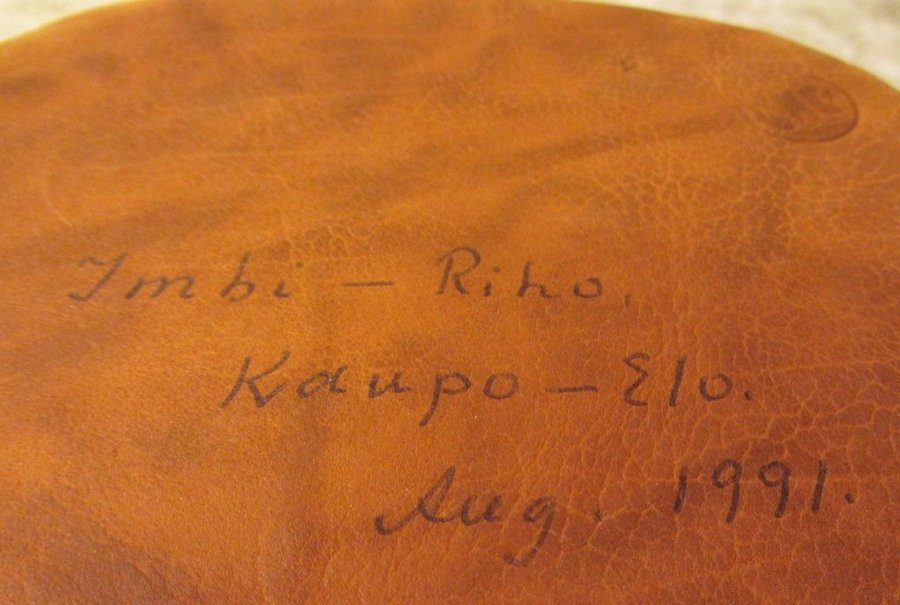 Imbi – Riho.
Kaupo – Elo.
Aug. 1991.